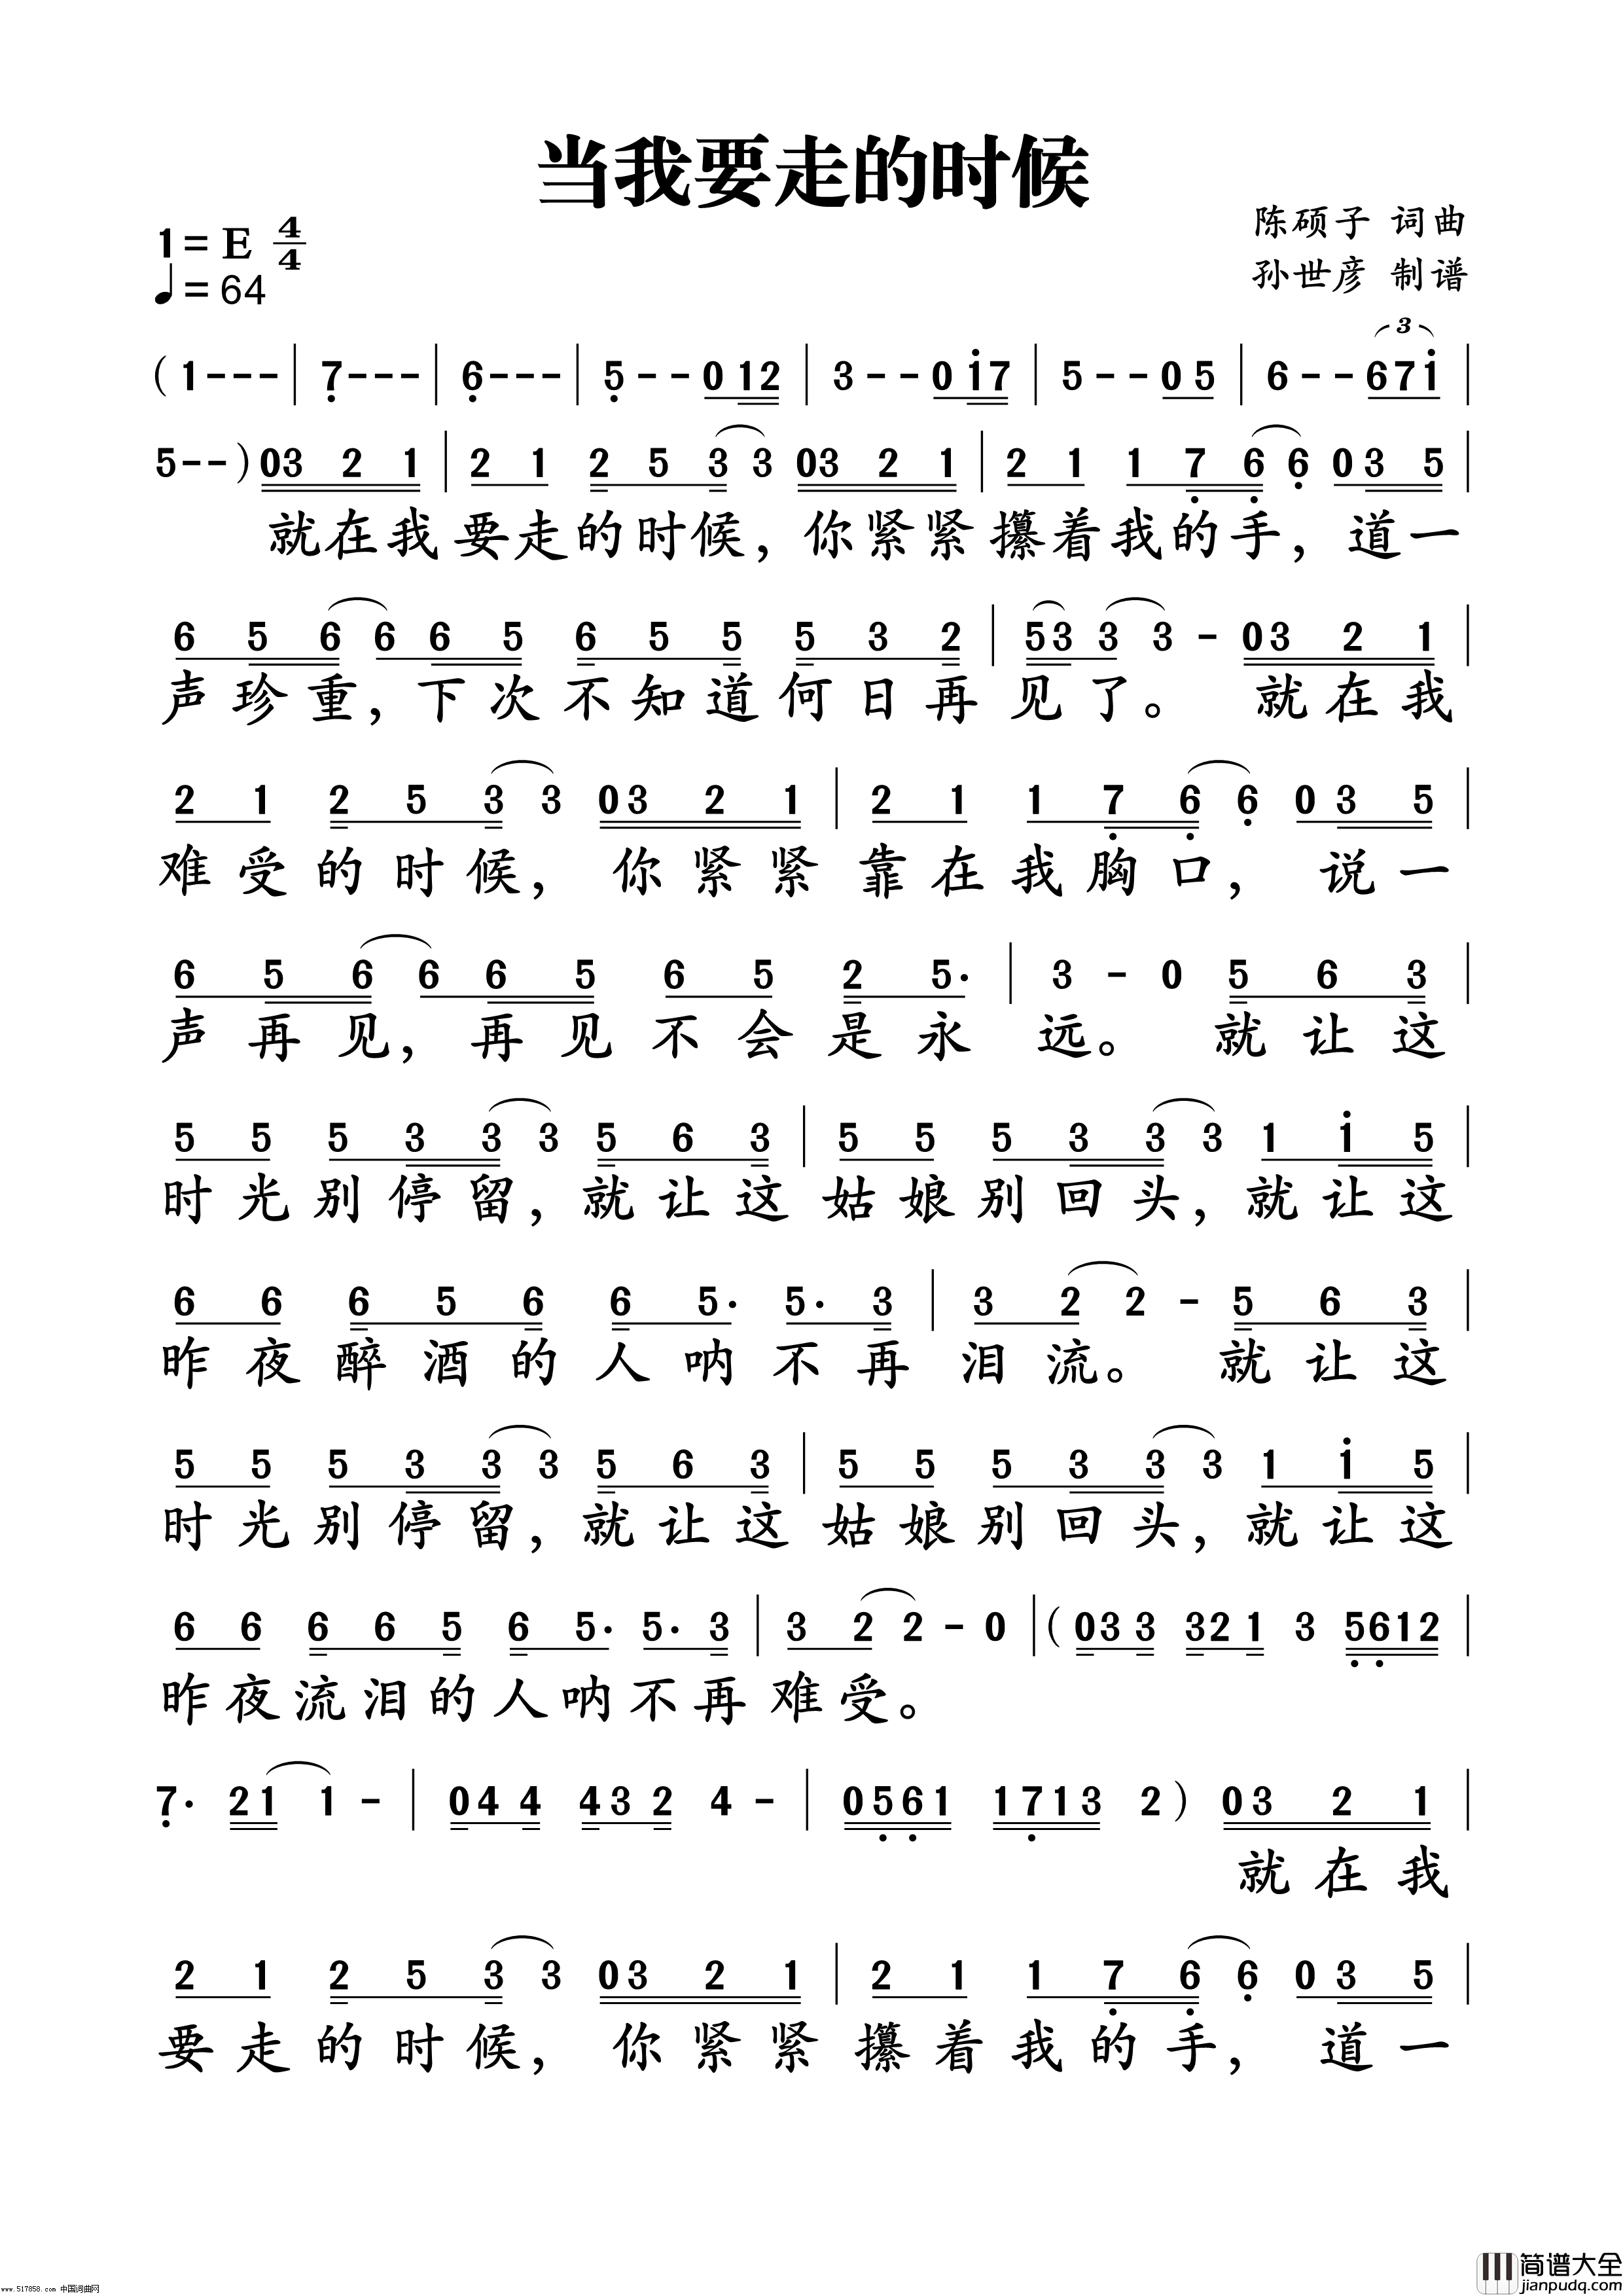 当我要走的时候
陈硕子 词曲
1=E 4/4
孙世彦 制谱
♩=64
(1--- | 7̣--- | 6̣--- | 5̣--012 | 3--01̇7 | 5--05 | 6--671̇ |
3
5--)0321 | 21 253 3 0321 | 21 17̣6̣ 6̣ 035 |
就在我要走的时候，你紧紧攥着我的手，道一
656 665 655 532 | 533 3-0321 |
声珍重，下次不知道何日再见了。 就在我
21 253 3 0321 | 21 17̣6̣ 6̣ 035 |
难受的时候， 你紧紧靠在我胸口， 说一
656 665 65 25. | 3-0 563 |
声再见，再见不会是永远。 就让这
55 533 3 563 | 55 533 3 11̇5 |
时光别停留，就让这姑娘别回头，就让这
66 656 65. 5.3 | 32 2-563 |
昨夜醉酒的人呐不再泪流。 就让这
55 533 3 563 | 55 533 3 11̇5 |
时光别停留，就让这姑娘别回头，就让这
66 665 65. 5.3 | 32 2-0 | (033 321 3 5̣6̣12 |
昨夜流泪的人呐不再难受。
7̣. 21 1- | 044 432 4- | 05̣6̣1 17̣13 2) 0321 |
就在我
21 253 3 0321 | 21 17̣6̣ 6̣ 035 |
要走的时候， 你紧紧攥着我的手， 道一
www.517858.com 中国词曲网
简谱大全
jianpudq.com